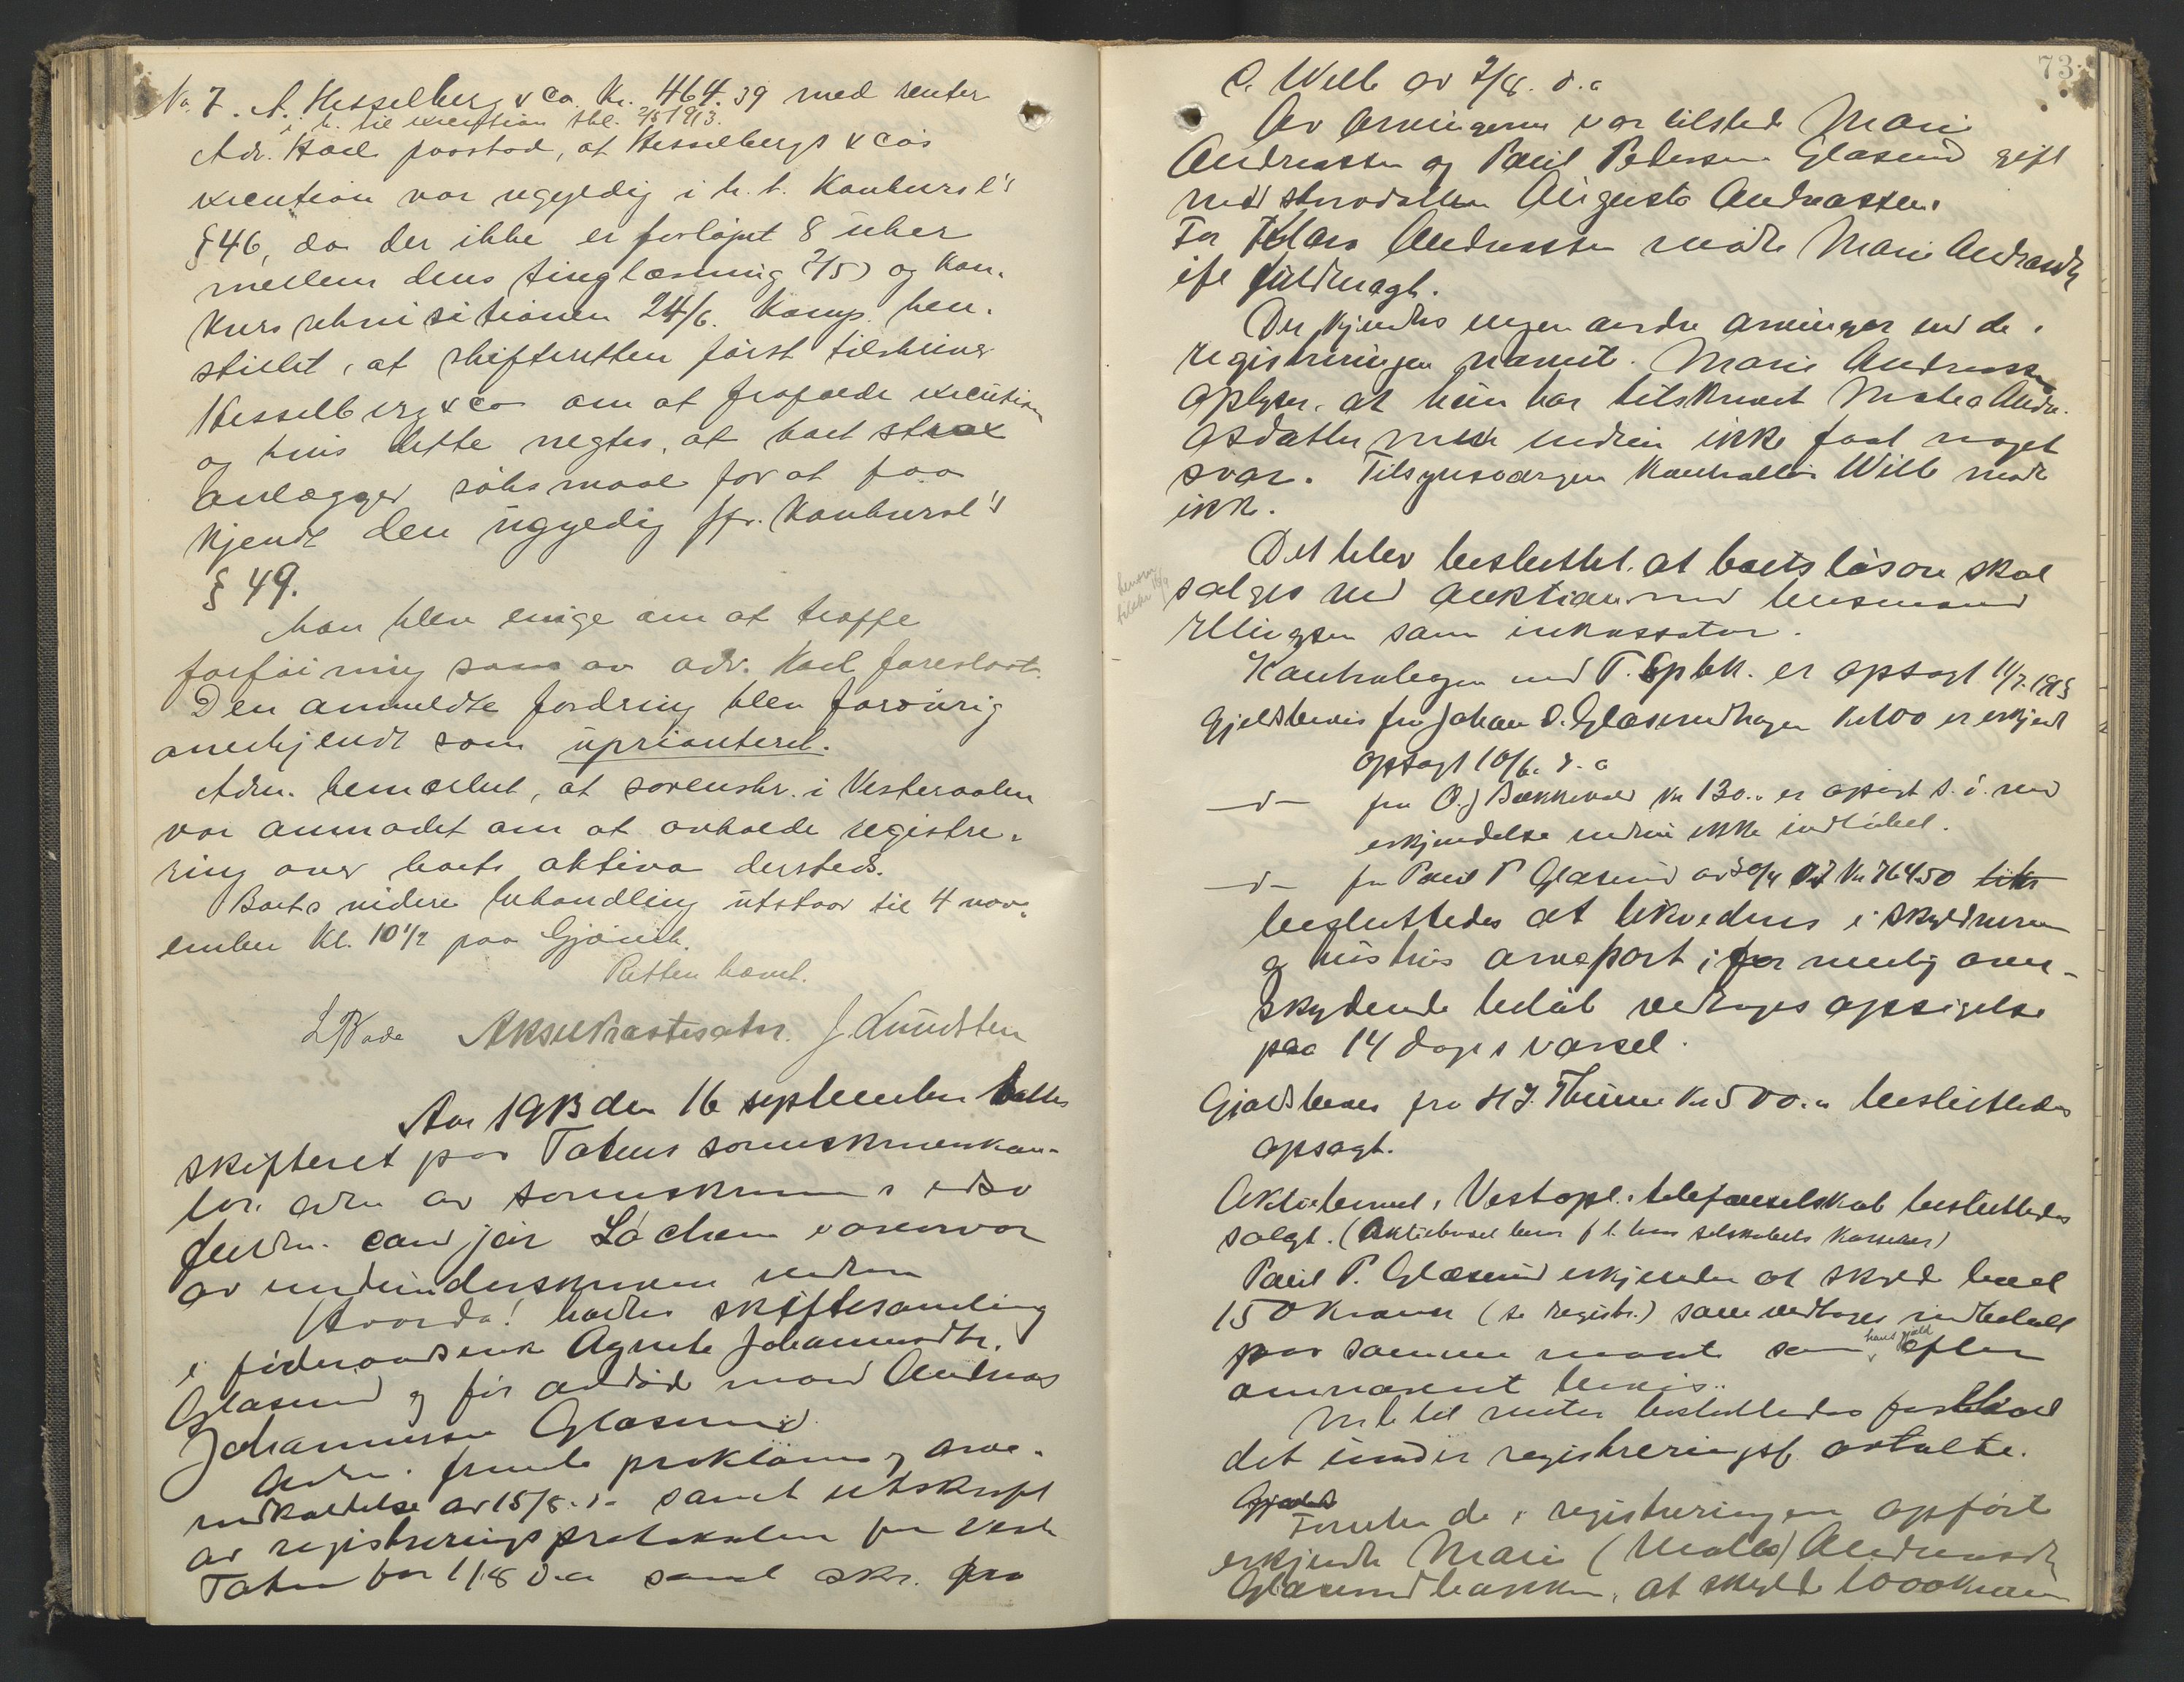 No. 7. A. Hesselberg & Co. Kr. 464.39 med renter
i h. til execution thl. 2/5 1913.
Adv. Hoel paastod, at Hesselbergs & Co's
execution var ugyldig i h. t. Konkursl's
§ 46, da der ikke er forløpet 8 uker
mellem dens tinglæsning 2/5) og kon-
kursrekvisitionen 24/6. Komp. hen-
stillet, at skifteretten først tilskriver
Hesselberg & Co om at frafalde execution
og hvis dette negtes, at boet strax
anlægger søksmaal for at faa
kjendt den ugyldig jfr. Konkursl's
§ 49.
Man blev enige om at træffe
forføining som av adv. Hoel foreslaat.
Den anmeldte fordring blev forøvrig
anerkjendt som uprioritert.
Adm. bemærket, at sorenskr. i Vesteraalen
var anmodet om at avholde registre-
ring over boets aktiva dersteds.
Boets videre behandling utstaar til 4 nov-
ember kl. 10 1/2 paa Gjøvik.
Retten hævet.
J. Knudsten
Aar 1913 den 16 september holdtes
skifteret paa Totens sorenskriverkon-
tor. adm av sorenskriverens edsv
fuldm. cand jur Lochen i overvær
av undertegnede vidner
Hvorda! holdtes skiftesamling
i føderaadsenke Agnete Johannesdtr.
Glæserud og før avdød mand Andreas
Johannessen Glæserud.
Adm. fremla proklama og arve-
indkaldelse av 15/8 d.a. samt utskrift
av registreringsprotokollen for Vestre
Toten for 1/8 d.a samt skr. fra
73
O. Willb av 2/8. d.a
Av arvingerne var tilstede Marie
Andreassen og Paul Pedersen Glæserud gift
med stervdatter Augusta Andreassen.
For Klara Andreassen møtte Marie Andreasdtr
ifl fuldmagt.
Der kjendtes ingen andre arvinger end de i
registreringen nævnte. Marie Andreassen
oplyser, at hun har tilskrevet Mathea Andre-
asdatter men endnu ikke faat noget
svar. Tilsynsværgen Kontrollør Willb møtte
ikke.
Det blev besluttet. at boets løsøre skal
sælges ved auktion med lensmand
Ellingsen som inkassator.
Kontrabogen med T. Spbk. er opsagt 11/7. 1913
Gjeldsbevis fra Johan O. Glæserudhagen kr 100 er erkjendt
opsagt 10/6. d.a
—d— fra O. J Bækkevold kr 130.. er opsagt s. d. med
erkjendelse endnu ikke indløbet.
—d— fra Paul P Glæserud av 30/4 07 Kr 764.50
besluttedes at likvideres i skyldneren
og hustrus arvepart; for mulig over-
skydende beløb vedtages opsigelse
paa 14 dages varsel.
Gjældsbevis fra H J. Thune kr 500.- besluttedes
opsagt.
Aktiebrevet i Vestopl. telefonselskab besluttedes
solgt. (Aktiebrevet beror f t. hos selskabets kasserer)
Paul P. Glæserud erkjender at skylde boet
150 kroner (se registr.) som vedtages indbetalt
paa samme maate som hans gjæld efter
omnævnt bevis.
M. h. til renter besluttedes forhold
det under registreringsf. avtalte.
Foruten de i registreringen opført
erkjendte Marie (Mathea) Andreasdtr
Glæserudbakken, at skylde 1000 kroner